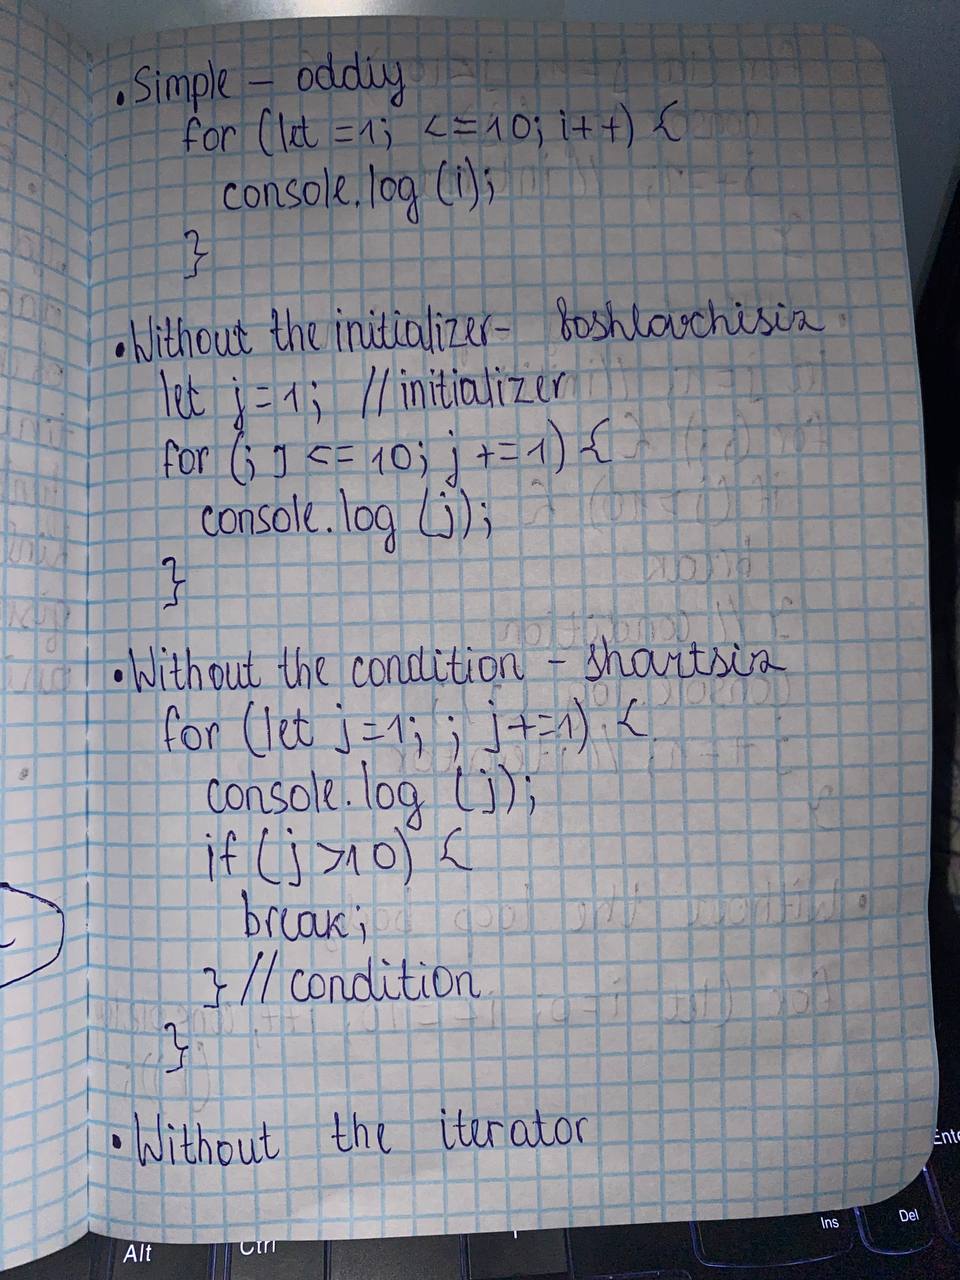 • Simple – oddiy
for (let =1; <=10; i++) {
console.log (i);
}
• Without the initializer – boshlovchisiz
let j=1; // initializer
for (; j <= 10; j +=1) {
console.log (j);
}
• Without the condition – shartsiz
for (let j=1; ; j+=1) {
console.log (j);
if (j >10) {
break;
} // condition
}
• Without the iterator
Alt
Ctrl
Ins
Del